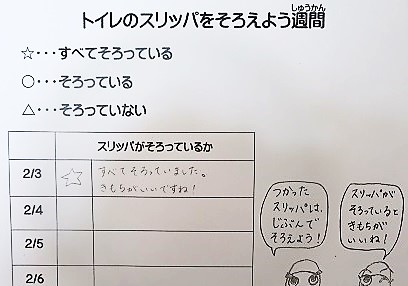 トイレのスリッパをそろえよう週間
しゅうかん
☆・・・すべてそろっている
○・・・そろっている
△・・・そろっていない
スリッパがそろっているか
2/3 ☆ すべてそろっていました。
きもちがいいですね!
2/4
2/5
2/6
つかった
スリッパは、
じぶんで
そろえよう!
スリッパが
そろっていると
きもちが
いいね!